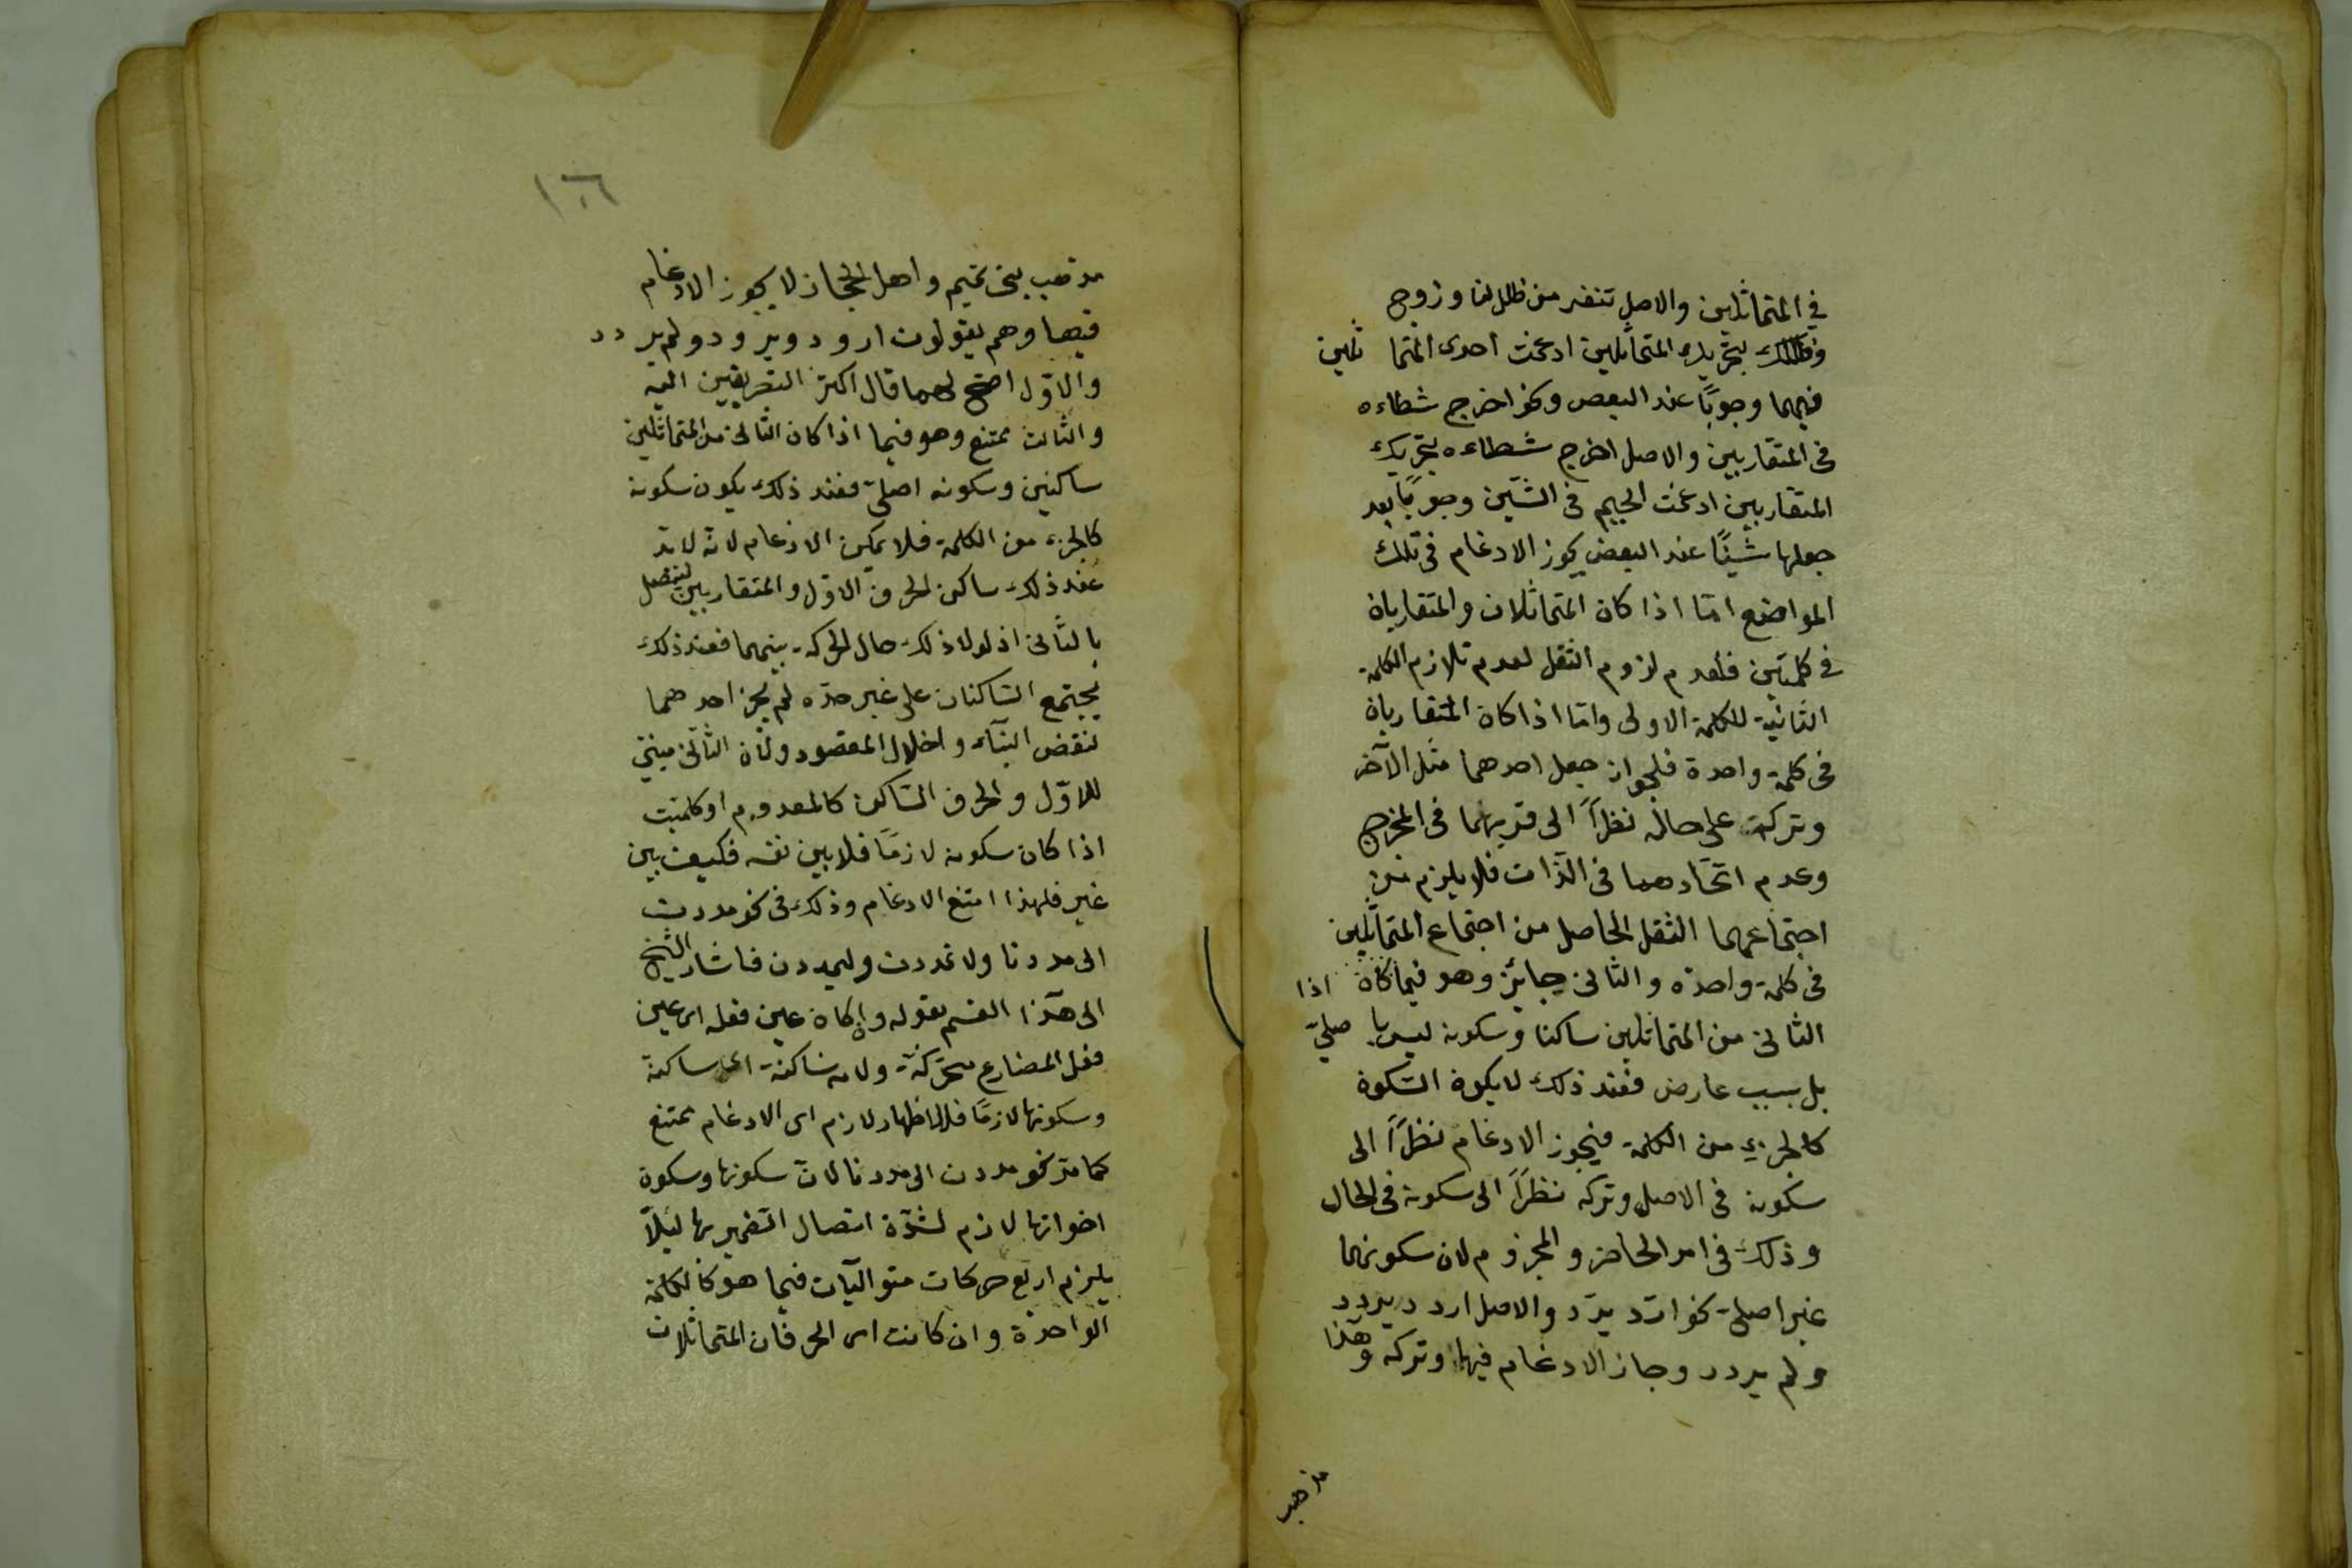 في المتماثلين والاصل تنفر من ظللنا وزوج
بتحريك المتماثلين ادغمت احدى المتما ثلين
فيهما وجوبًا عند البعض ونحو اخرج شطاءه
فى المتقاربين والاصل اخرج شطاءه بتحريك
المتقاربين ادغمت الجيم فى الشين وجوبًا بعد
جعلها شينًا عند البعض يجوز الادغام فى تلك
المواضع امّا اذا كان المتماثلان والمتقاربان
فى كلمتين فلعدم لزوم الثقل لعدم تلازم الكلمة
الثانية للكلمة الاولى وامّا اذا كان المتقاربان
فى كلمة واحدة فلجواز جعل احدهما مثل الآخر
وتركه على حاله نظرًا الى قربهما فى المخرج
وعدم اتحادهما فى الذات فلا يلزم من
اجتماعهما الثقل الحاصل من اجتماع المتماثلين
فى كلمة واحدة والثانى جائز وهو فيما كان اذا
الثانى من المتماثلين ساكنا وسكونه ليس با صلىّ
بل بسبب عارض فعند ذلك لا يكون السكون
كالجزء من الكلمة فيجوز الادغام نظرًا الى
سكونه فى الاصل وتركه نظرًا الى سكونه فى الحال
وذلك فى امر الحاضر والمجزوم لان سكونهما
غير اصلىّ نحو اردّ يردّ والاصل اردد يردد
ولم يردد وجاز الادغام فيها وتركه وهذا
مذهب
١٦
مذهب بنى تميم واهل الحجاز لا يجوز الادغام
فيها وهم يقولون اردد ويردد ولم يردد
والاوّل اصح لهما قال اكثر التصريفيين اليه
والثالث ممتنع وهو فيما اذا كان الثانى من المتماثلين
ساكنين وسكونه اصلىّ فعند ذلك يكون سكونه
كالجزء من الكلمة فلا يمكن الادغام لانه لابد
عند ذلك ساكن الحرف الاوّل والمتقاربين ليتصل
بالثانى اذ لولا ذلك حال الحركة بينهما فعند ذلك
يجتمع الساكنان على غير حدّه لم يجز احدهما
لنقض البناء واخلال المقصود ولأن الثانى مبنى
للاوّل والحرف الساكن كالمعدوم او كلميت
اذا كان سكونه لازمًا فلا يبين نفسه فكيف يبين
غير فلهذا امتنع الادغام وذلك فى نحو مددت
الى مددنا ولا تمددن وليمددن فاشار الشيخ
الى هذا القسم بقوله وإن كان عين فعله اى عين
فعل المضارع متحركة ولامه ساكنة اى ساكنة
وسكونها لازمًا فالاظهار لازم اى الادغام ممتنع
كما مرّ نحو مددن الى مددنا لانّ سكونها وسكون
اخواتها لازم لشدّة اتصال الضمير بها ليلّا
يلزم اربع حركات متواليات فيما هو كالكلمة
الواحدة وان كانت اى الحرفان المتماثلان